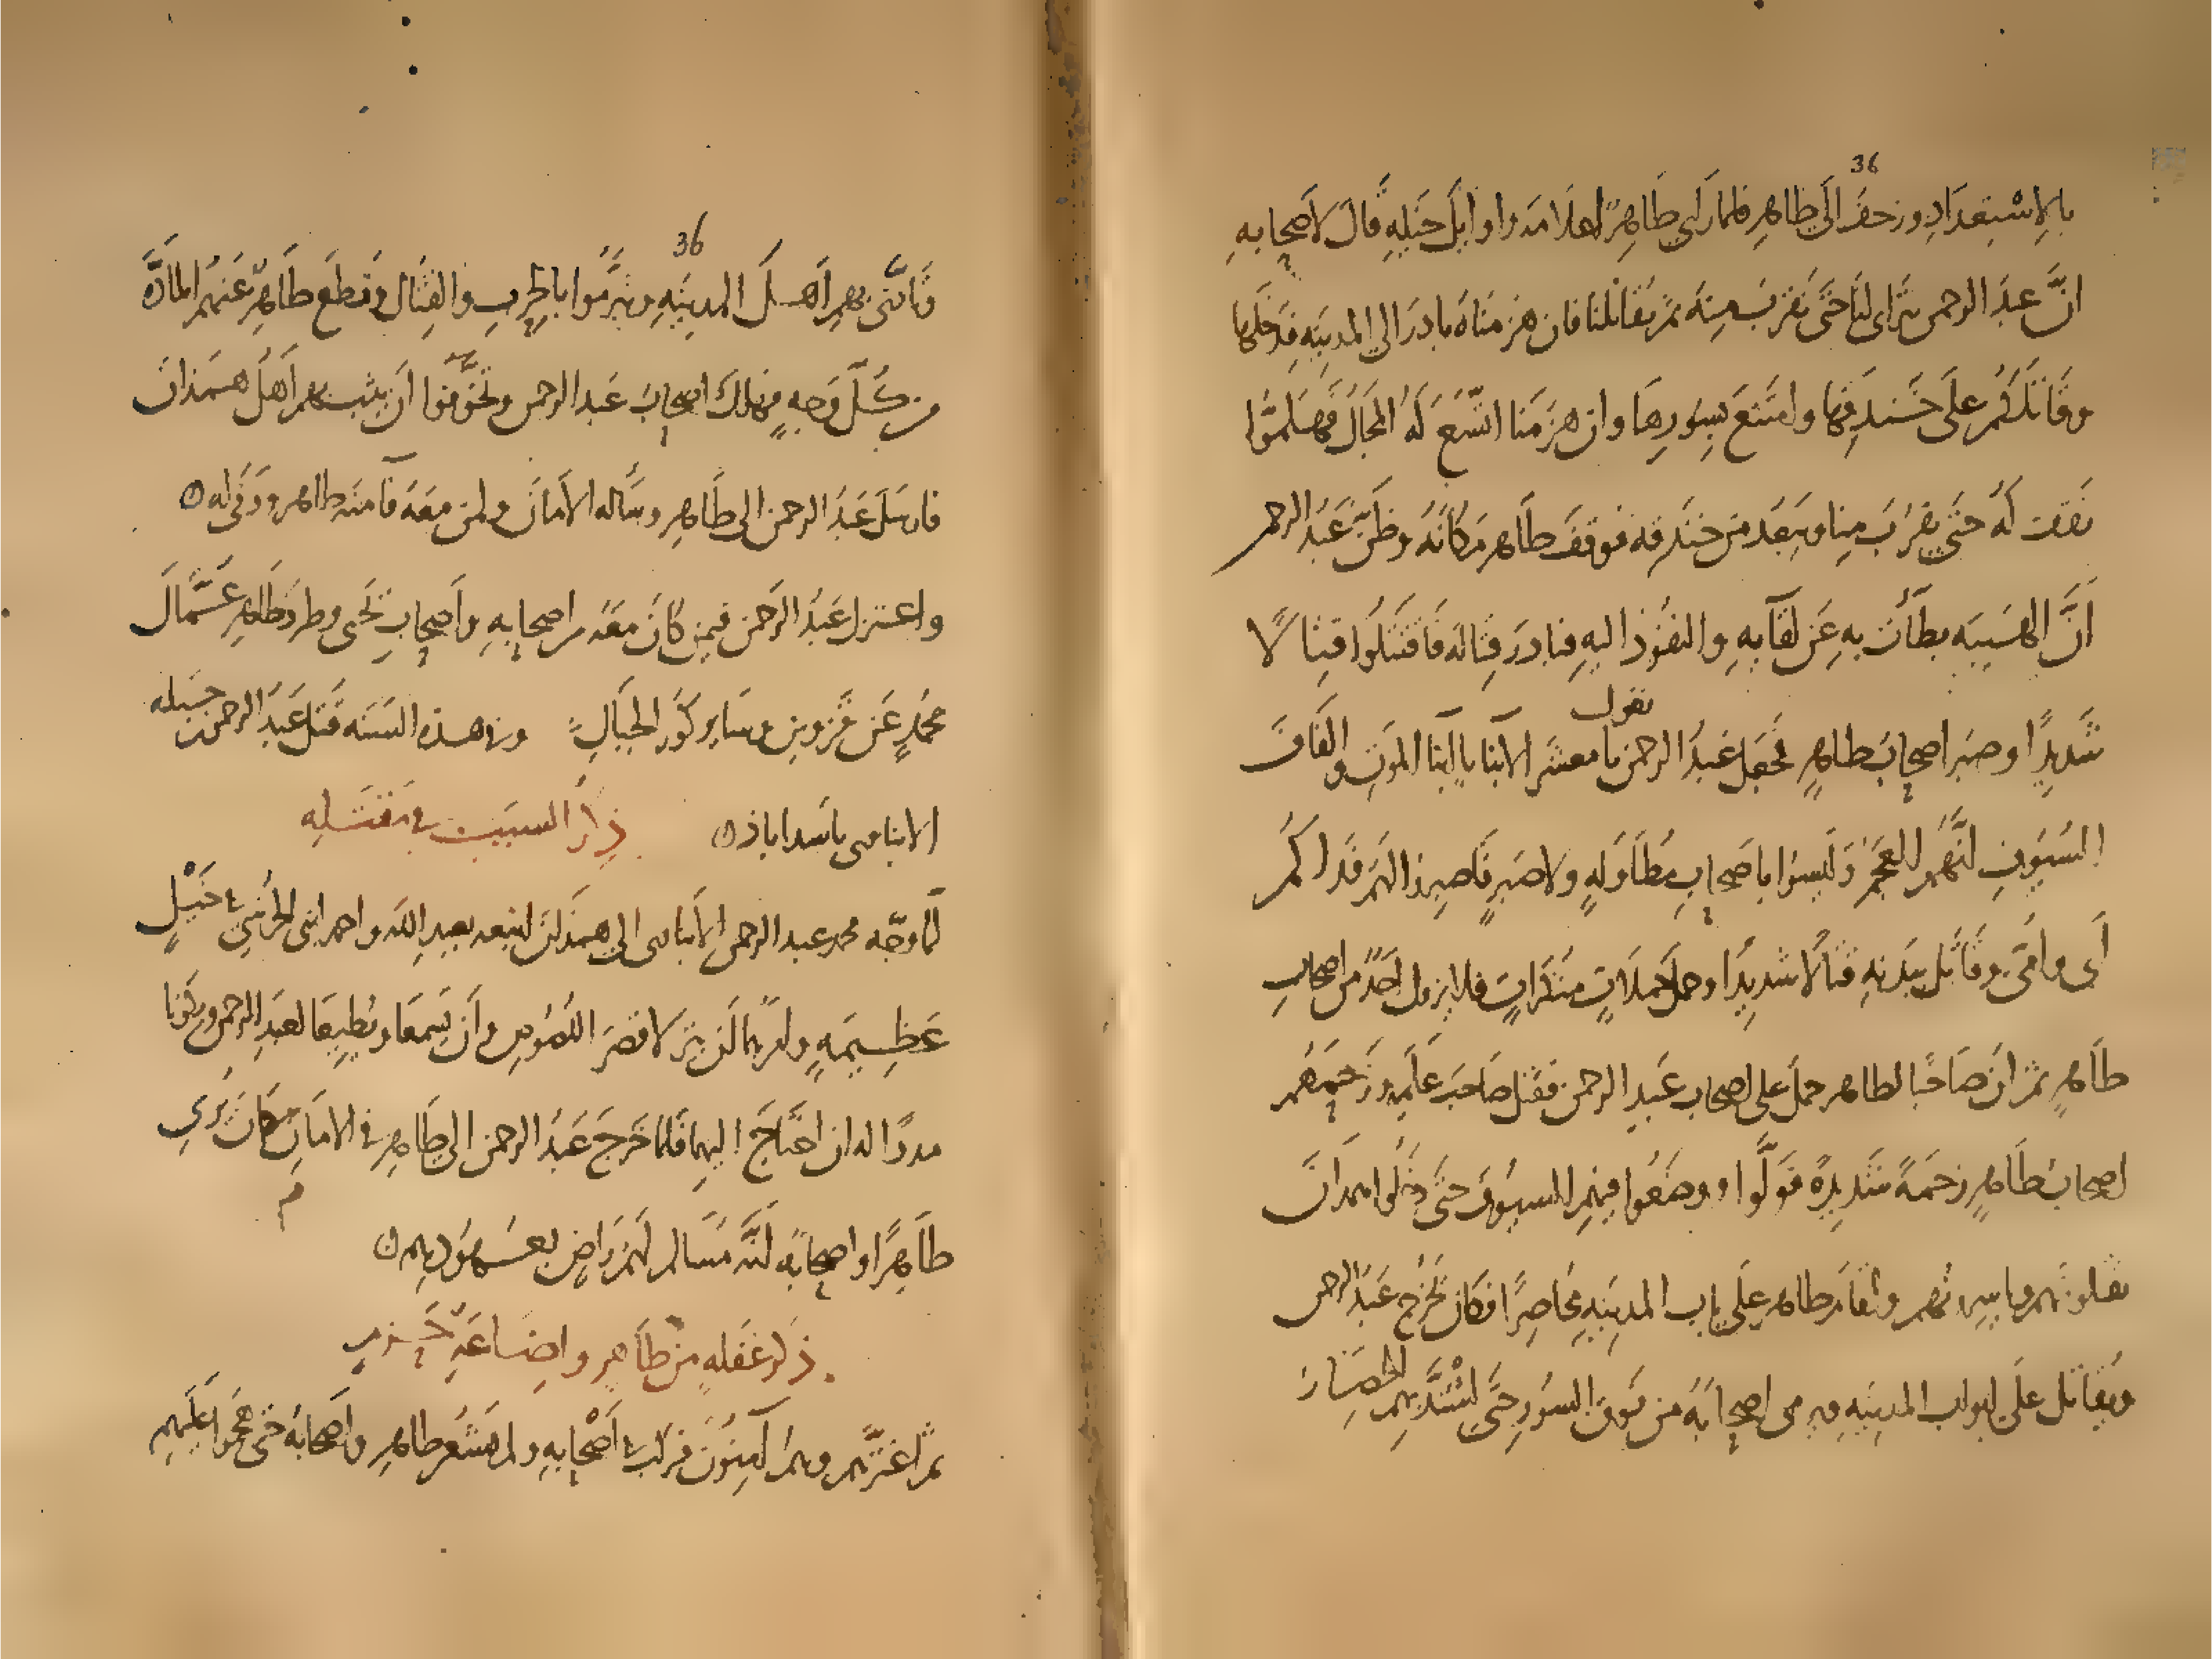 36
بالاستعداد وزحف الى طاهر فلما رأى طاهر اعلامه واوايل خيله قال لاصحابه
انّ عبد الرحمن يتراى لنا حتى نقرب منه ثم يقاتلنا فان هزمناه بادر الى المدينه فدخلها
وقاتلكم على خندقها وامتنع بسورها وان هزمنا اتّسع له المجال فهلمّوا
نقف له حتى يقرب منا ويبعد من خندقه فوقف طاهر مكانه وظنّ عبد الرحمن
انّ الهيبه بطّأت به عن لقآيه والنفوذ اليه فبادر قتاله فاقتتلوا قتالًا
شديدًا وصبر اصحاب طاهرٍ فجعل عبد الرحمن يقول يا معشر الابنا يا ابنا الموت والفاف
السيوف انّهم العجم وليسوا باصحاب مطاولةٍ ولا صبرٍ فاصبروا لهم فداكم
ابى وامّى وقاتل بيدنه قتالًا شديدًا وحمل حملاتٍ منكراتٍ فلا يزول احدٌ من اصحاب
طاهرٍ ثم ان صاحبًا لطاهر حمل على اصحاب عبد الرحمن فقتل صاحب علمه وزحمهم
اصحاب طاهرٍ زحمةً شديدةً فولّوا ووضعوا فيهم السيوف حتى دخلوا همدان
يقتلونهم وياسرونهم واقام طاهر على باب المدينه محاصرًا فكان يخرج عبد الرحمن
ويقاتل على ابواب المدينه ويرمى اصحابه من فوق السور حتى اشتدّ بهم الحصار
36
وتاذّى بهم اهل المدينه وتبرّموا بالحرب والقتال وقطع طاهر عنهم المادّة
من كلّ وجهٍ فهلك اصحاب عبد الرحمن وتخوّفوا ان يثب بهم اهل همذان
فارسل عبد الرحمن الى طاهر وسأله الامان ولمن معه فآمنه طاهر ووفى له
واعتزل عبد الرحمن فيمن كان معه من اصحابه واصحاب يحيى وطرد طاهر عمّال
محمدٍ عن قزوين وساير كور الجبال وفى هذه السنه قتل عبد الرحمن بن جبله
الابناوى باسداباذ ذكر السبب فى مقتله
لمّا وجّه محمد عبد الرحمن الابناوى الى همذان اتبعه بعبد الله واحمد ابنى الحرشى فى خيلٍ
عظيمةٍ وامرهما ان ينزلا قصر اللصوص وان يسمعا ويطيعا لعبد الرحمن ويكونا
مددًا له ان احتاج اليهما فلما خرج عبد الرحمن الى طاهر فى الامان كان يرى
طاهرًا واصحابه انّه مسالم لهم راضٍ بعهودهم
ذكر غفله من طاهر واضاعة حزم
ثم اغترّهم وهم آمنون فركب فى اصحابه ولم يشعر طاهر واصحابه حتى هجموا عليهم